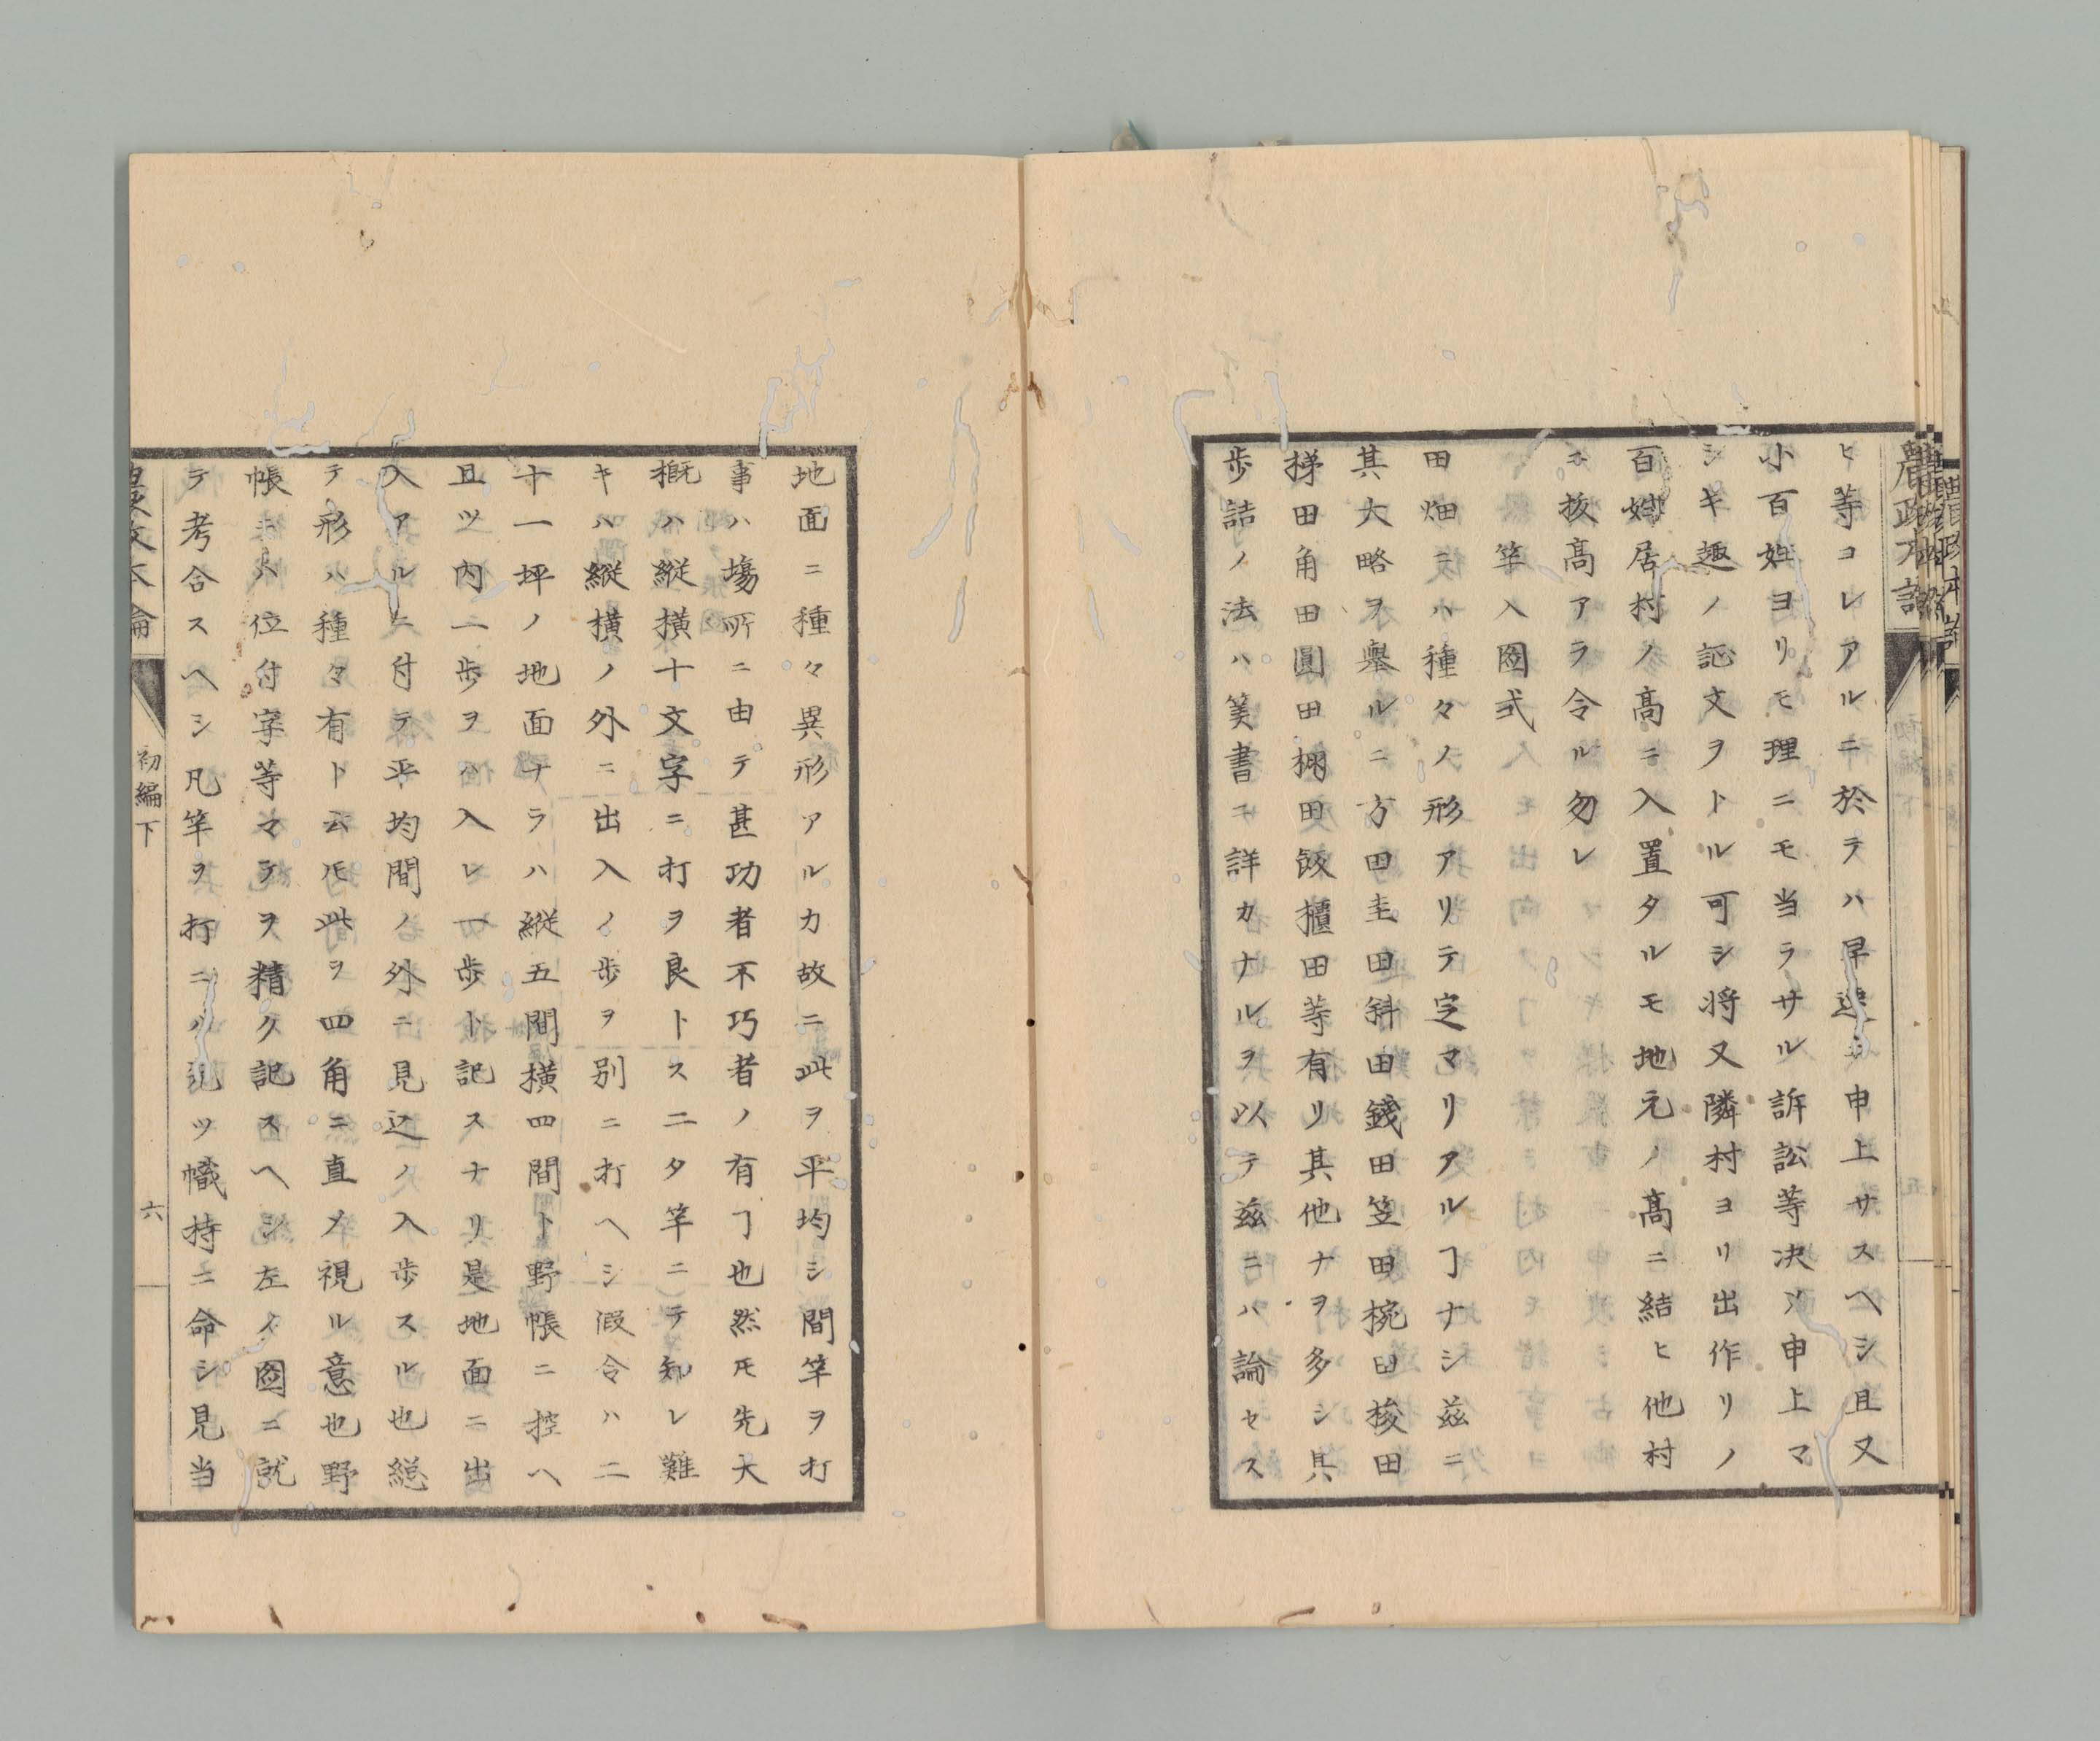 ヒ等コレアルニ於テハ早速ニ申上サスヘシ且又
小百姓ヨリモ理ニモ当ラサル訴訟等決〆申上マ
シキ趣ノ証文ヲトル可シ将又隣村ヨリ出作リノ
百姓居村ノ高ニ入置タルモ地元ノ高ニ結ヒ他村
ニ抜高アラ令ル勿レ
竿入圖式
田畑ニハ種々ノ形アリテ定マリアルヿナシ茲ニ
其大略ヲ舉ルニ方田圭田斜田錢田笠田椀田梭田
梯田角田圓田棚田飯櫃田等有リ其他ナヲ多シ其
歩詰ノ法ハ筭書ニ詳カナルヲ以テ茲ニハ論セス
地面ニ種々異形アルカ故ニ此ヲ平均シ間竿ヲ打
事ハ塲所ニ由テ甚功者不巧者ノ有ヿ也然𪜈先大
概ハ縦横十文字ニ打ヲ良トス二タ竿ニテ知レ難
キハ縦横ノ外ニ出入ノ歩ヲ別ニ打ヘシ假令ハ二
十一坪ノ地面ナラハ縦五間横四間ト野帳ニ控ヘ
且ツ内二歩ヲハ入レ一歩ト記スナリ是地面ニ出
入アルニ付テ平均間ノ外ニ見込ノ入歩スル也総
テ形ハ種々有ト云𪜈此ヲ四角ニ直〆視ル意也野
帳ニハ位付字等マテヲ精ク記スヘシ左ノ圖ニ就
テ考合スヘシ凡竿ヲ打ニハ先ツ幟持ニ命シ見当
農政本論
初編下
六